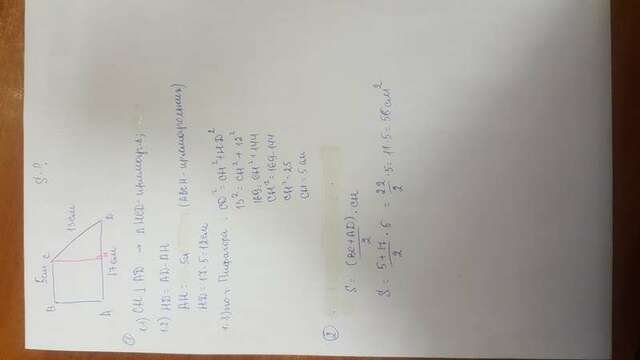 S-?
B 5см C
13см
A 17см H D
①
1.1) CH⊥AD → ΔHCD-прямоуг.;
1.2) HD = AD-AH
AH = 5см (ABCH-прямоугольник)
HD = 17-5=12см
1.3) по т. Пифагора: CD²=CH²+HD²
13²=CH²+12²
169=CH²+144
CH²=169-144
CH²=25
CH=5см
②
S= (BC+AD)/2 · CH
S= 5+17/2 · 5 = 22/2 · 5=11·5=55см²